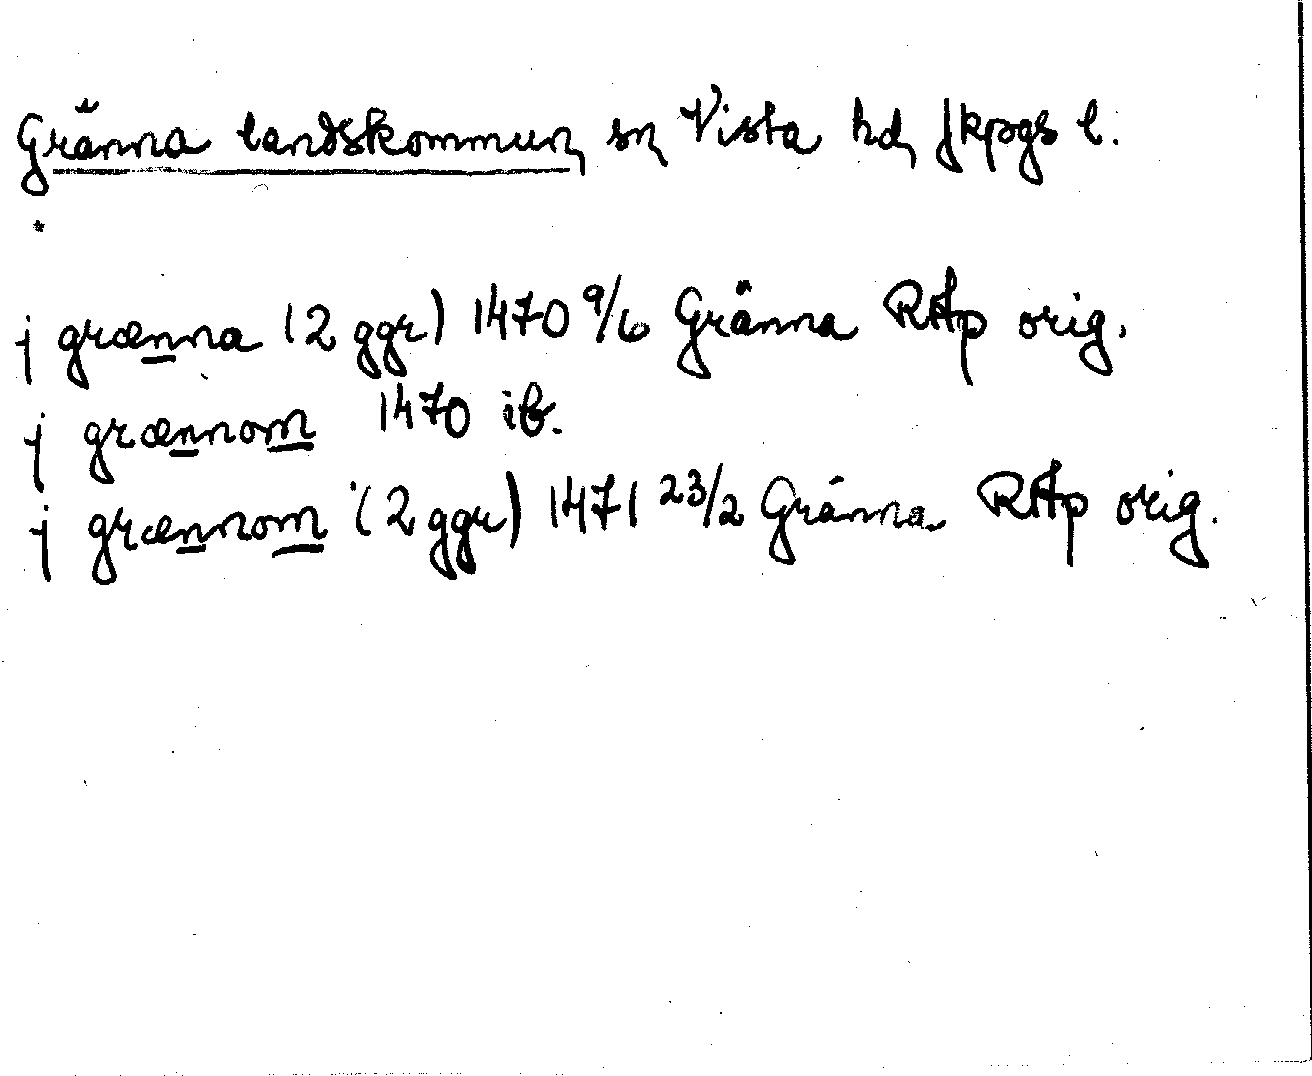 Gränna landskommun, sn, Vista hd, Jkpgs l.
*
j grænna (2 ggr) 1470 9/6 Gränna RAp orig.
j grænnom 1470 ib.
j grænnom (2 ggr) 1471 23/2 Gränna RAp orig.